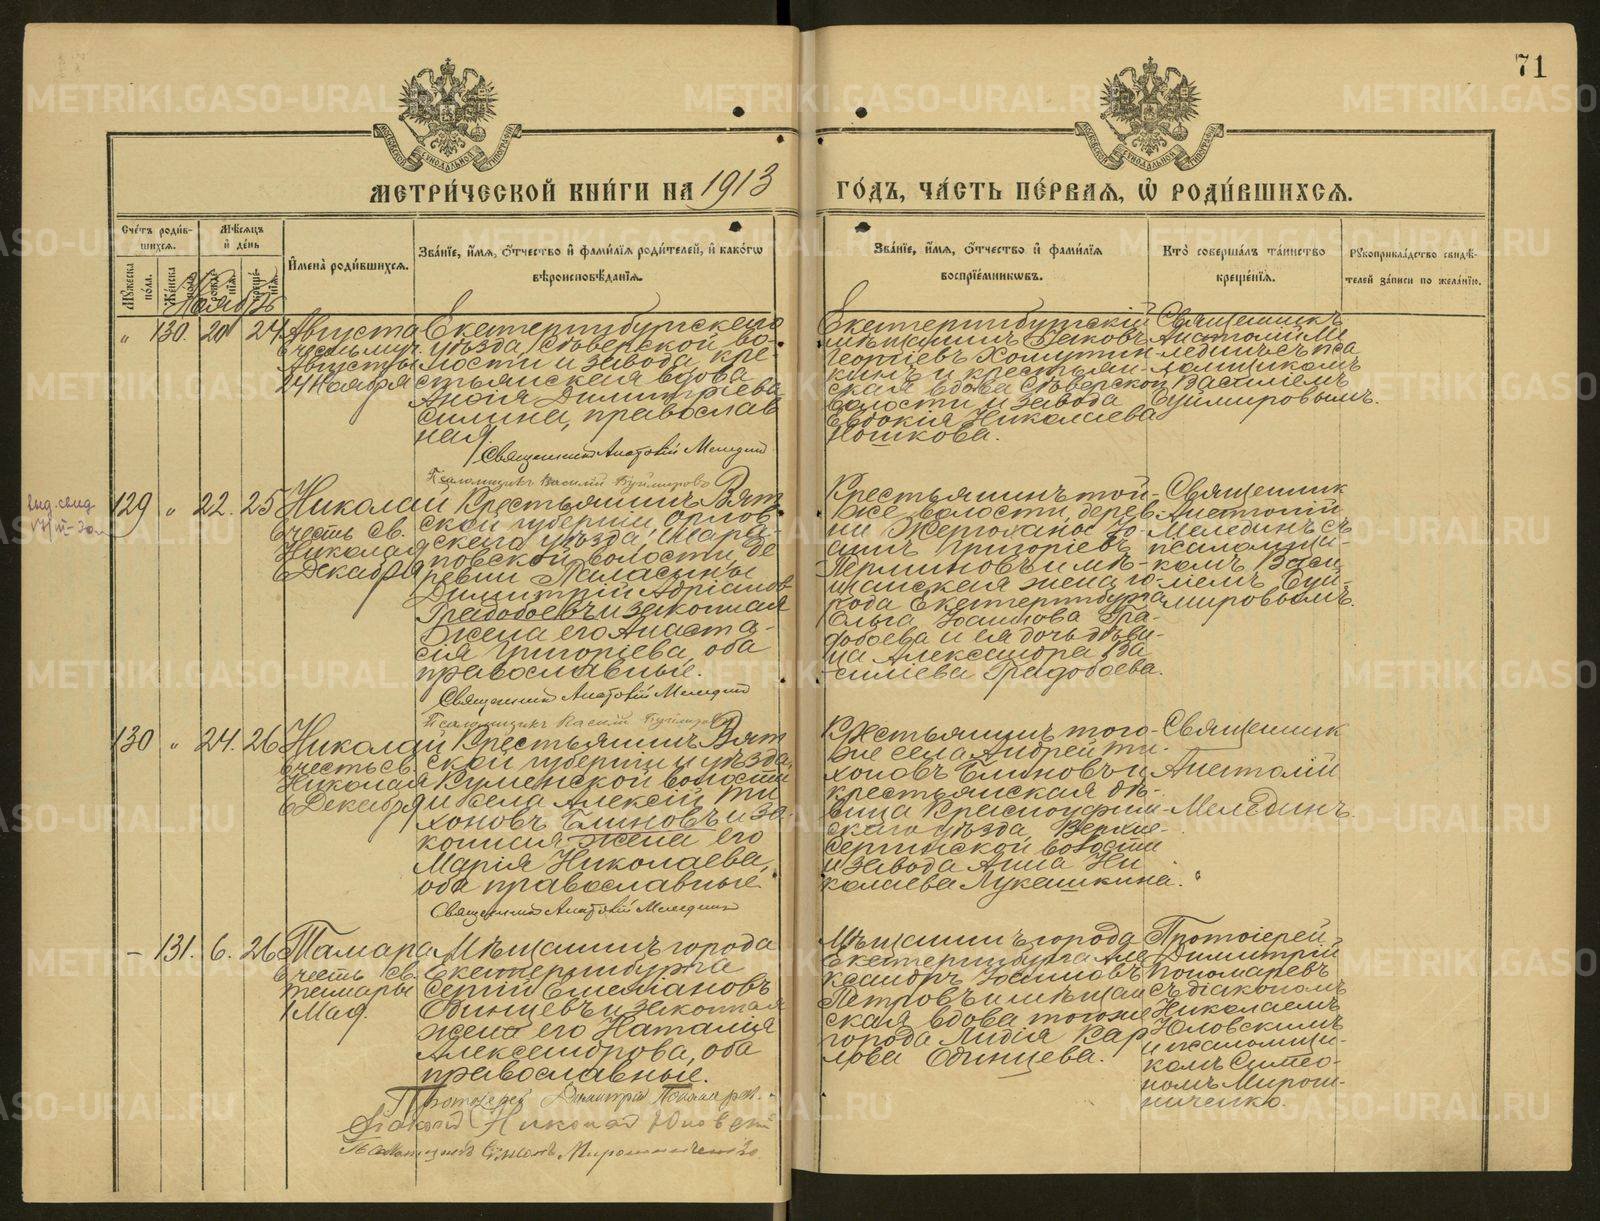 71
МЕТРИ́ЧЕСКОЙ КНИ́ГИ НА 1913 ГО́ДЪ, ЧА́СТЬ ПЕ́РВАЯ, Ѡ РОДИ́ВШИХСЯ.
Сче́тъ роди́вшихся.
Му́жеска по́ла.
Же́нска по́ла.
Мѣ́сяцъ и де́нь
рожде́нія.
креще́нія.
Ноябрь
Имена́ роди́вшихся.
Зва́ніе, и́мя, о́тчество и фами́лія роди́телей, и како́гѡ
вѣроисповѣ́данія.
Зва́ніе, и́мя, о́тчество и фами́лія
воспрїе́мникѡвъ.
Кто̀ соверша́лъ та́инство
креще́нія.
Рукоприкла́дство свидѣ́-
телей за́писи по жела́нію.
„ 130. 20 24
Августа
Августы
24 Ноября
Екатеринбургскаго
уѣзда Сѣверской во-
лости и завода кре-
стьянская вдова
Анна Димитріева
Силина, православ
ная.
Священникъ Анатолій Мелединъ
Псаломщикъ Василій Буймировъ
Екатеринбургскій
мѣщанинъ Іаковъ
Георгіевъ Хомутин-
кинъ и крестьян-
ская вдова Сѣверской
волости и завода
Евдокія Николаева
Пошкова.
Священникъ
Анатолій Ме
лединъ съ пса
ломщикомъ
Василіемъ
Буймировымъ.
129 „ 22. 25
Николай
въ честь св.
Николая
6 Декабря
Крестьянинъ Вят
ской губерніи, Орлов
скаго уѣзда, Шара-
повской волости, де
ревни Паласыны
Димитрій Адріанов
Градобоевъ и законная
жена его Анаста-
сія Григоріева, оба
православные.
Священникъ Анатолій Мелединъ
Псаломщикъ Василій Буймировъ
Крестьянинъ той-
же волости, дерев
ни Жерноханы Іо-
аннъ Григоріевъ
Перминовъ и мѣ-
щанская жена го-
рода Екатеринбурга
Ольга Іоаннова Гра-
добоева и ея дочь дѣви-
ца Александра Ва
силіева Градобоева.
Священник
Анатолій
Мелединъ съ
псаломщи-
комъ Васи
ліемъ Буй-
мировымъ.
130 „ 24. 26
Николай
въ честь св.
Николая
6 Декабря
Крестьянинъ Вят
ской губерніи и уѣзда,
Куменской волости
и села Алексій Ти
хоновъ Блиновъ и за-
конная жена его
Марія Николаева,
оба православные.
Священникъ Анатолій Мелединъ
Крестьянинъ того-
же села Андрей Ти-
хоновъ Блиновъ и
крестьянская дѣ-
вица Красноуфим-
скаго уѣзда, Верхне-
Сергинской волости
и завода Анна Ни
колаева Лукашкина.
Священник
Анатолій
Мелединъ.
– 131. 6. 26
Тамара
въ честь св.
Тамары
1 Мая.
Мѣщанинъ города
Екатеринбурга
Сергій Емеліановъ
Одинцевъ и законная
жена его Наталія
Александрова, оба
православные.
Протоіерей Димитрій Пономаревъ
Діаконъ Николай Юловскій
Псаломщикъ Симеонъ Мирошниченко.
Мѣщанинъ города
Екатеринбурга Але
ксандръ Іоанновъ
Петровъ и мѣщан
ская вдова того же
города Лидія Кар
пова Одинцева.
Протоіерей
Димитрій
Пономаревъ
съ діакономъ
Николаемъ
Юловскимъ
и псаломщи-
комъ Симео-
номъ Мирош-
ниченко.
METRIKI.GASO-URAL.RU